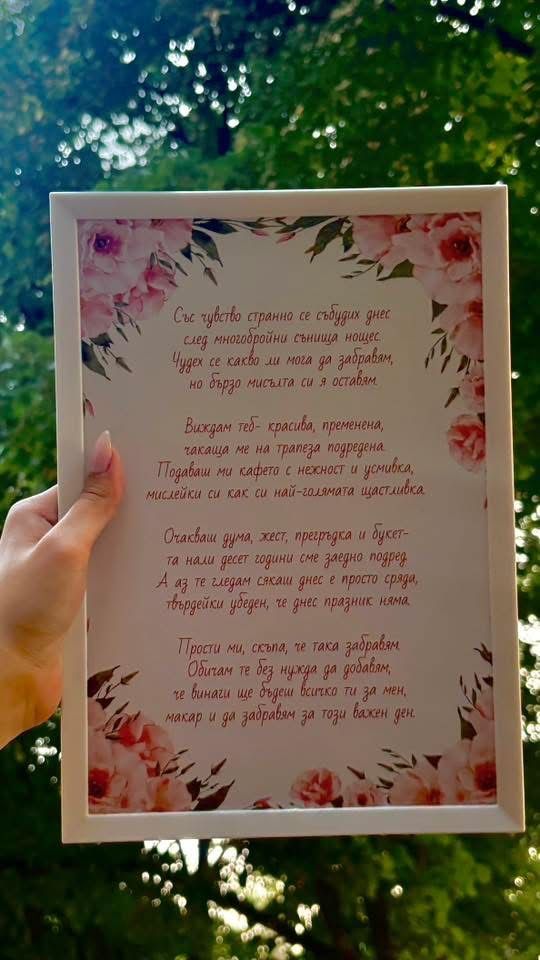 Със чувство странно се събудих днес
след многобройни сънища нощес.
Чудех се какво ли мога да забравям,
но бързо мисълта си я оставям.
Виждам теб- красива, пременена,
чакаща ме на трапеза подредена.
Подаваш ми кафето с нежност и усмивка,
мислейки си как си най-голямата щастливка.
Очакваш дума, жест, прегръдка и букет-
та нали десет години сме заедно подред.
А аз те гледам сякаш днес е просто сряда,
твърдейки убеден, че днес празник няма.
Прости ми, скъпа, че така забравям.
Обичам те без нужда да добавям,
че винаги ще бъдеш всичко ти за мен,
макар и да забравям за този важен ден.